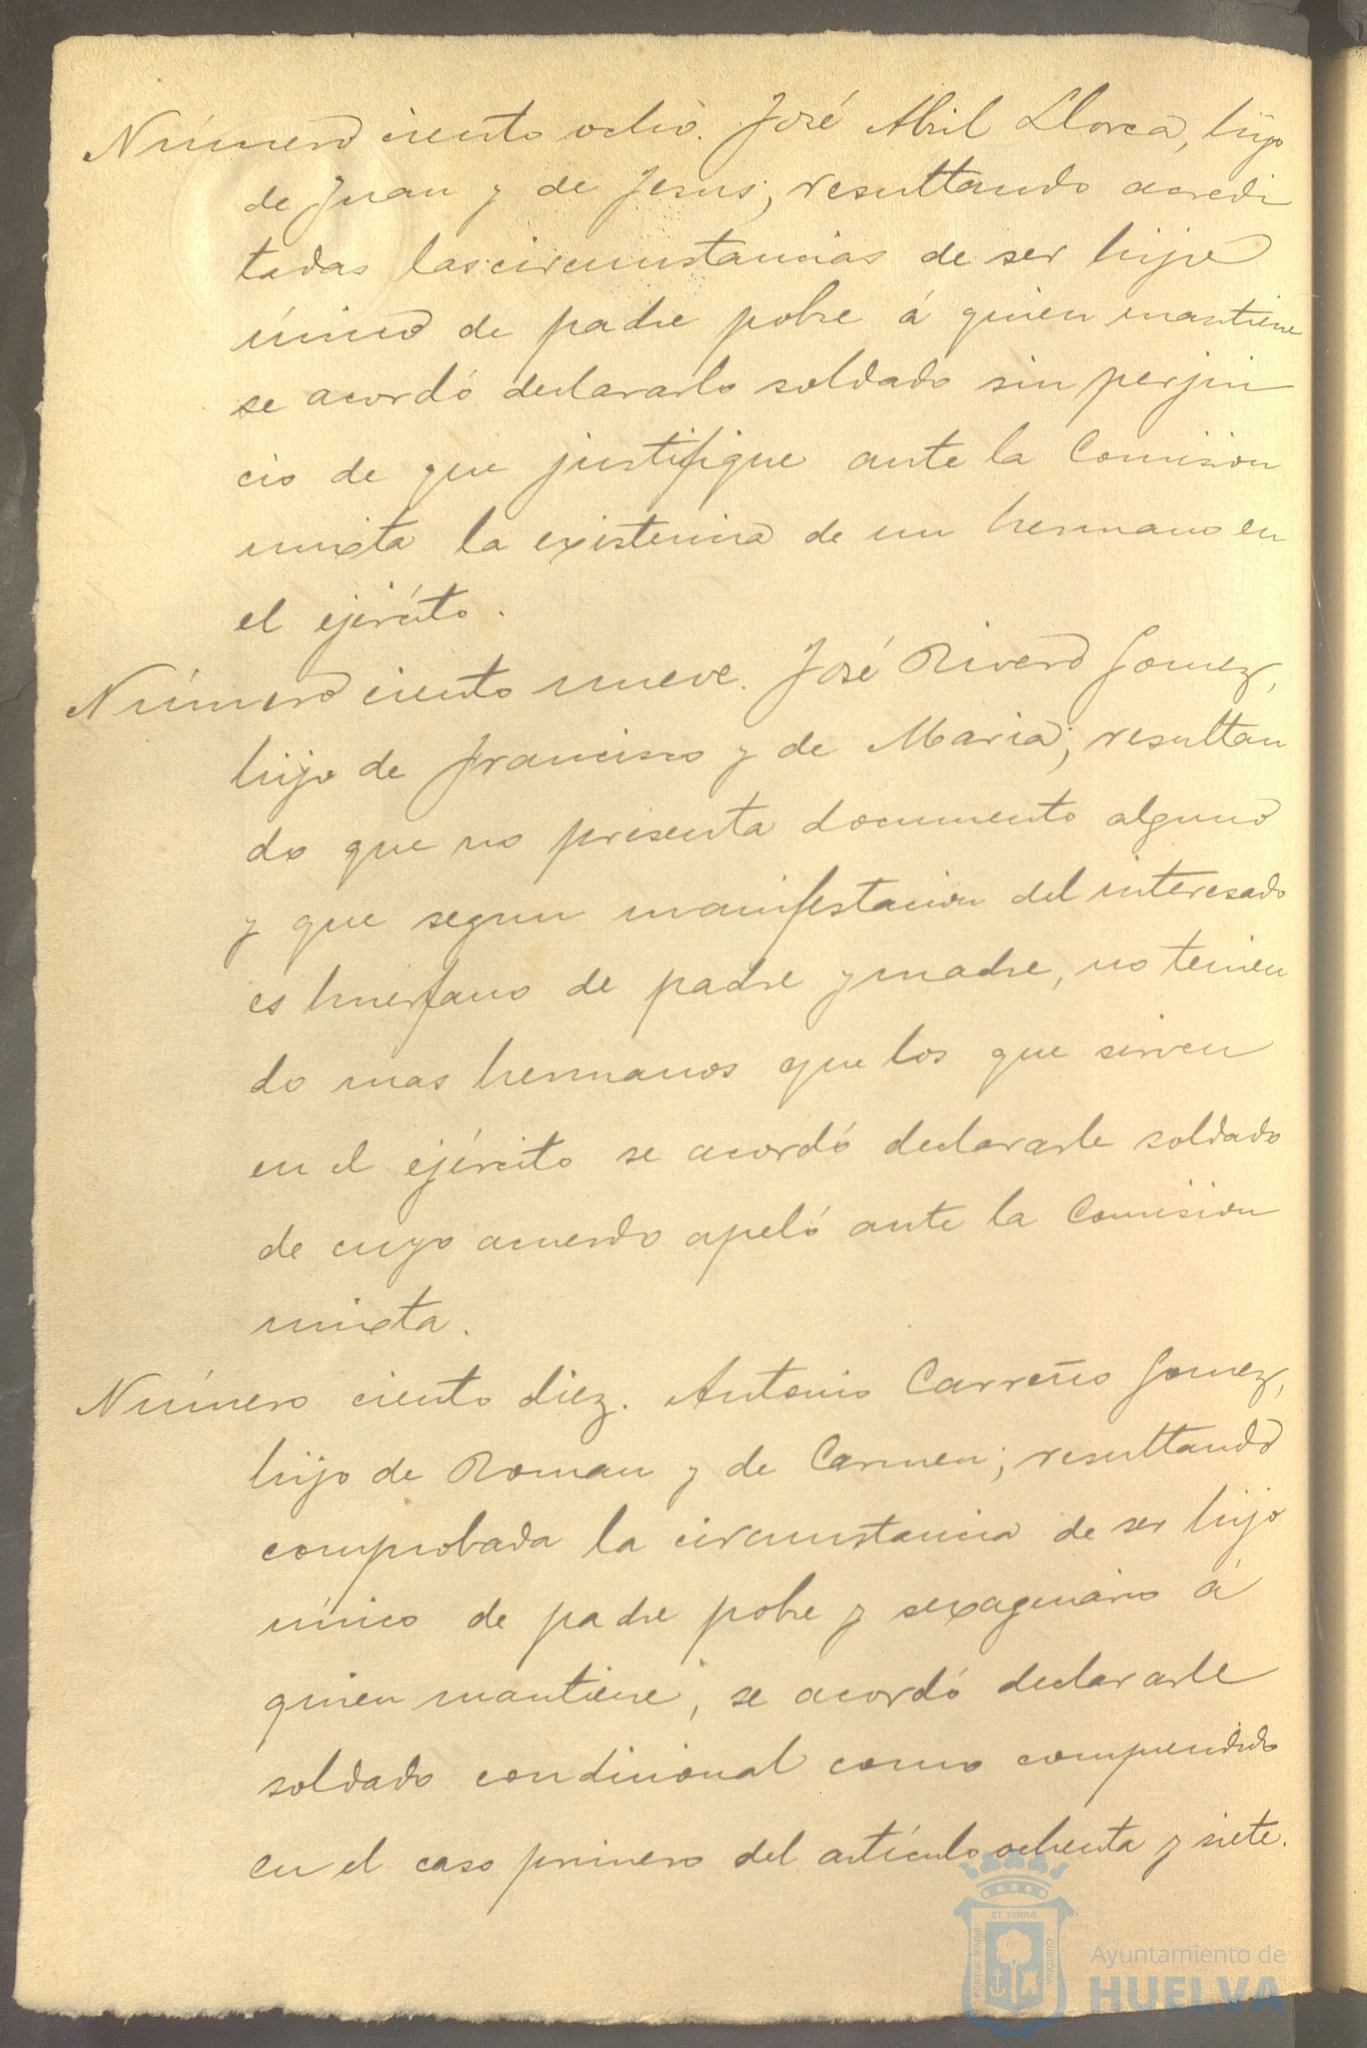 Número ciento ocho. José Abril Llorca, hijo
de Juan y de Jesus; resultando acredi
tadas las circunstancias de ser hijo
único de padre pobre á quien mantiene
se acordó declararlo soldado sin perjui
cio de que justifique ante la Comision
mixta la existencia de un hermano en
el ejército.
Número ciento nueve. José Rivero Gomez,
hijo de Francisco y de Maria; resultan
do que no presenta documento alguno
y que segun manifestacion del interesado
es huerfano de padre y madre, no tenien
do mas hermanos que los que sirven
en el ejército se acordó declararle soldado
de cuyo acuerdo apeló ante la Comision
mixta.
Número ciento diez. Antonio Carreño Gomez,
hijo de Roman y de Carmen; resultando
comprobada la circunstancia de ser hijo
único de padre pobre y sexagenario á
quien mantiene, se acordó declararle
soldado condicional como comprendido
en el caso primero del artículo ochenta y siete.
ET TERRÆ
PORTUS MARIS
CUSTODIA
Ayuntamiento de
HUELVA